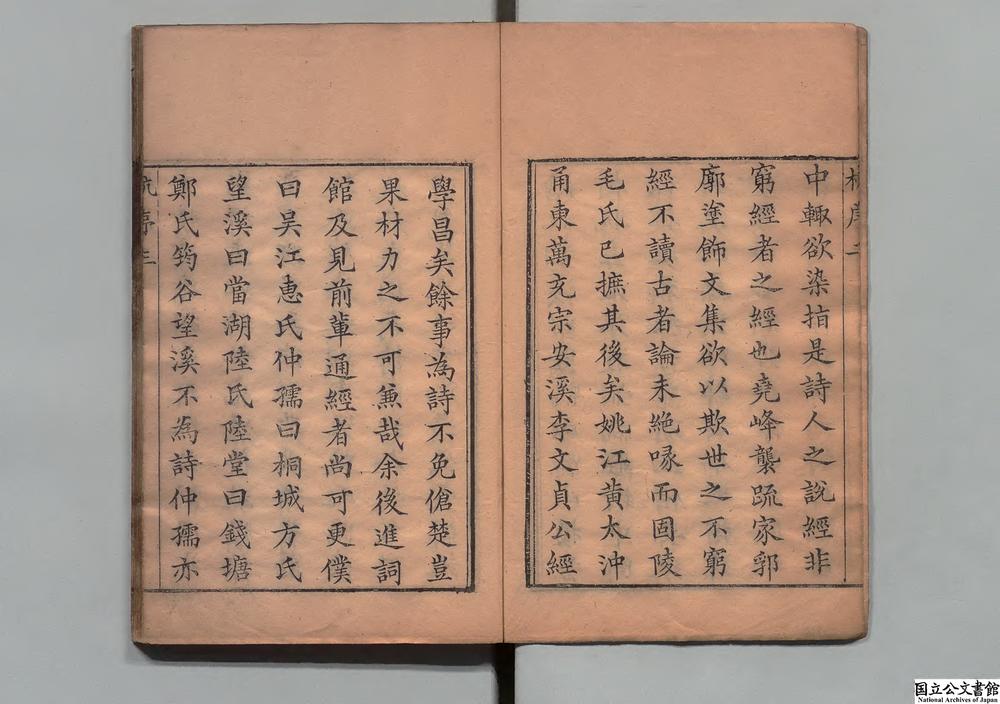 中輙欲染指是詩人之說經非
窮經者之經也堯峰襲䟽家郛
廓塗飾文集欲以欺世之不窮
經不讀古者論未絶喙而固陵
毛氏已摭其後矣姚江黄太沖
甬東萬充宗安溪李文貞公經
學昌矣餘事為詩不免傖楚豈
果材力之不可兼哉余後進詞
館及見前輩通經者尚可更僕
曰吴江惠氏仲孺曰桐城方氏
望溪曰當湖陸氏陸堂曰錢塘
鄭氏筠谷望溪不為詩仲孺亦
国立公文書館
National Archives of Japan